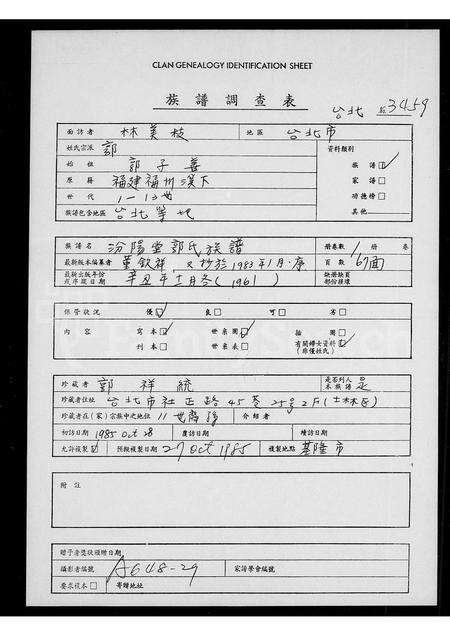 CLAN GENEALOGY IDENTIFICATION SHEET
族譜調查表
台北 3459
面訪者 林美枝 地區 台北市
姓氏宗派 郭 資料類別
始祖 郭子善 族譜 ☑
原籍 福建福州 家譜 □
世代 1-12世 功德榜 □
族譜包含地區 台北等地 其他
族譜名 汾陽堂郭氏族譜 冊卷數 1 冊 卷
最新版本編纂者 董欽祥,又抄於1983年1月.序 頁數 67面
最新出版年份或序跋日期 辛丑年十一月冬(1961) 缺冊缺頁部份損壞
保管狀況 優 ☑ 良 □ 可 □ 劣 □
內容 寫本 ☑ 世系圖 ☑ 插圖 □
刊本 □ 世系表 □ 有關婦女資料 ☑ (非僅姓氏)
珍藏者 郭祥統 是否列入本族譜 是
珍藏者住址 台北市社正路45巷25号2F(士林區)
珍藏者在(家)宗族中史地位 11世裔孫 介紹者
初訪日期 1985 Oct 28 覆訪日期 續訪日期
允許複製 ☑ 預擬複製日期 27 Oct 1985 複製地點 基隆市
附註
贈予者獎狀頒贈日期
攝影者編號 A648-29 家譜學會編號
要求複本 □ 寄贈地址